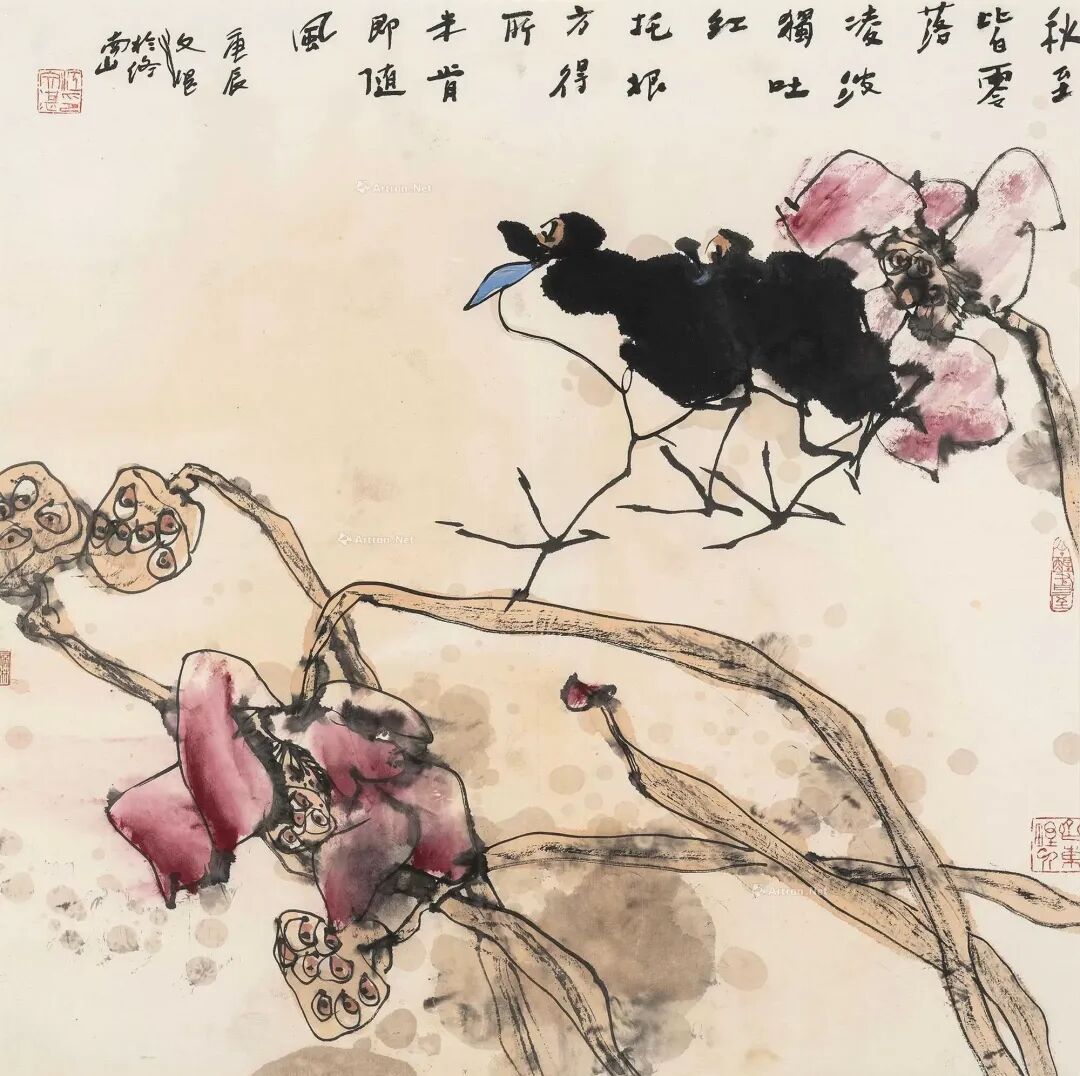 秋至
皆零
落
凌波
獨吐
紅
托根
方得
所
未肯
即隨
風
庚辰
文湛
於終
南山
Artron.Net
Artron.Net
Artron.Net